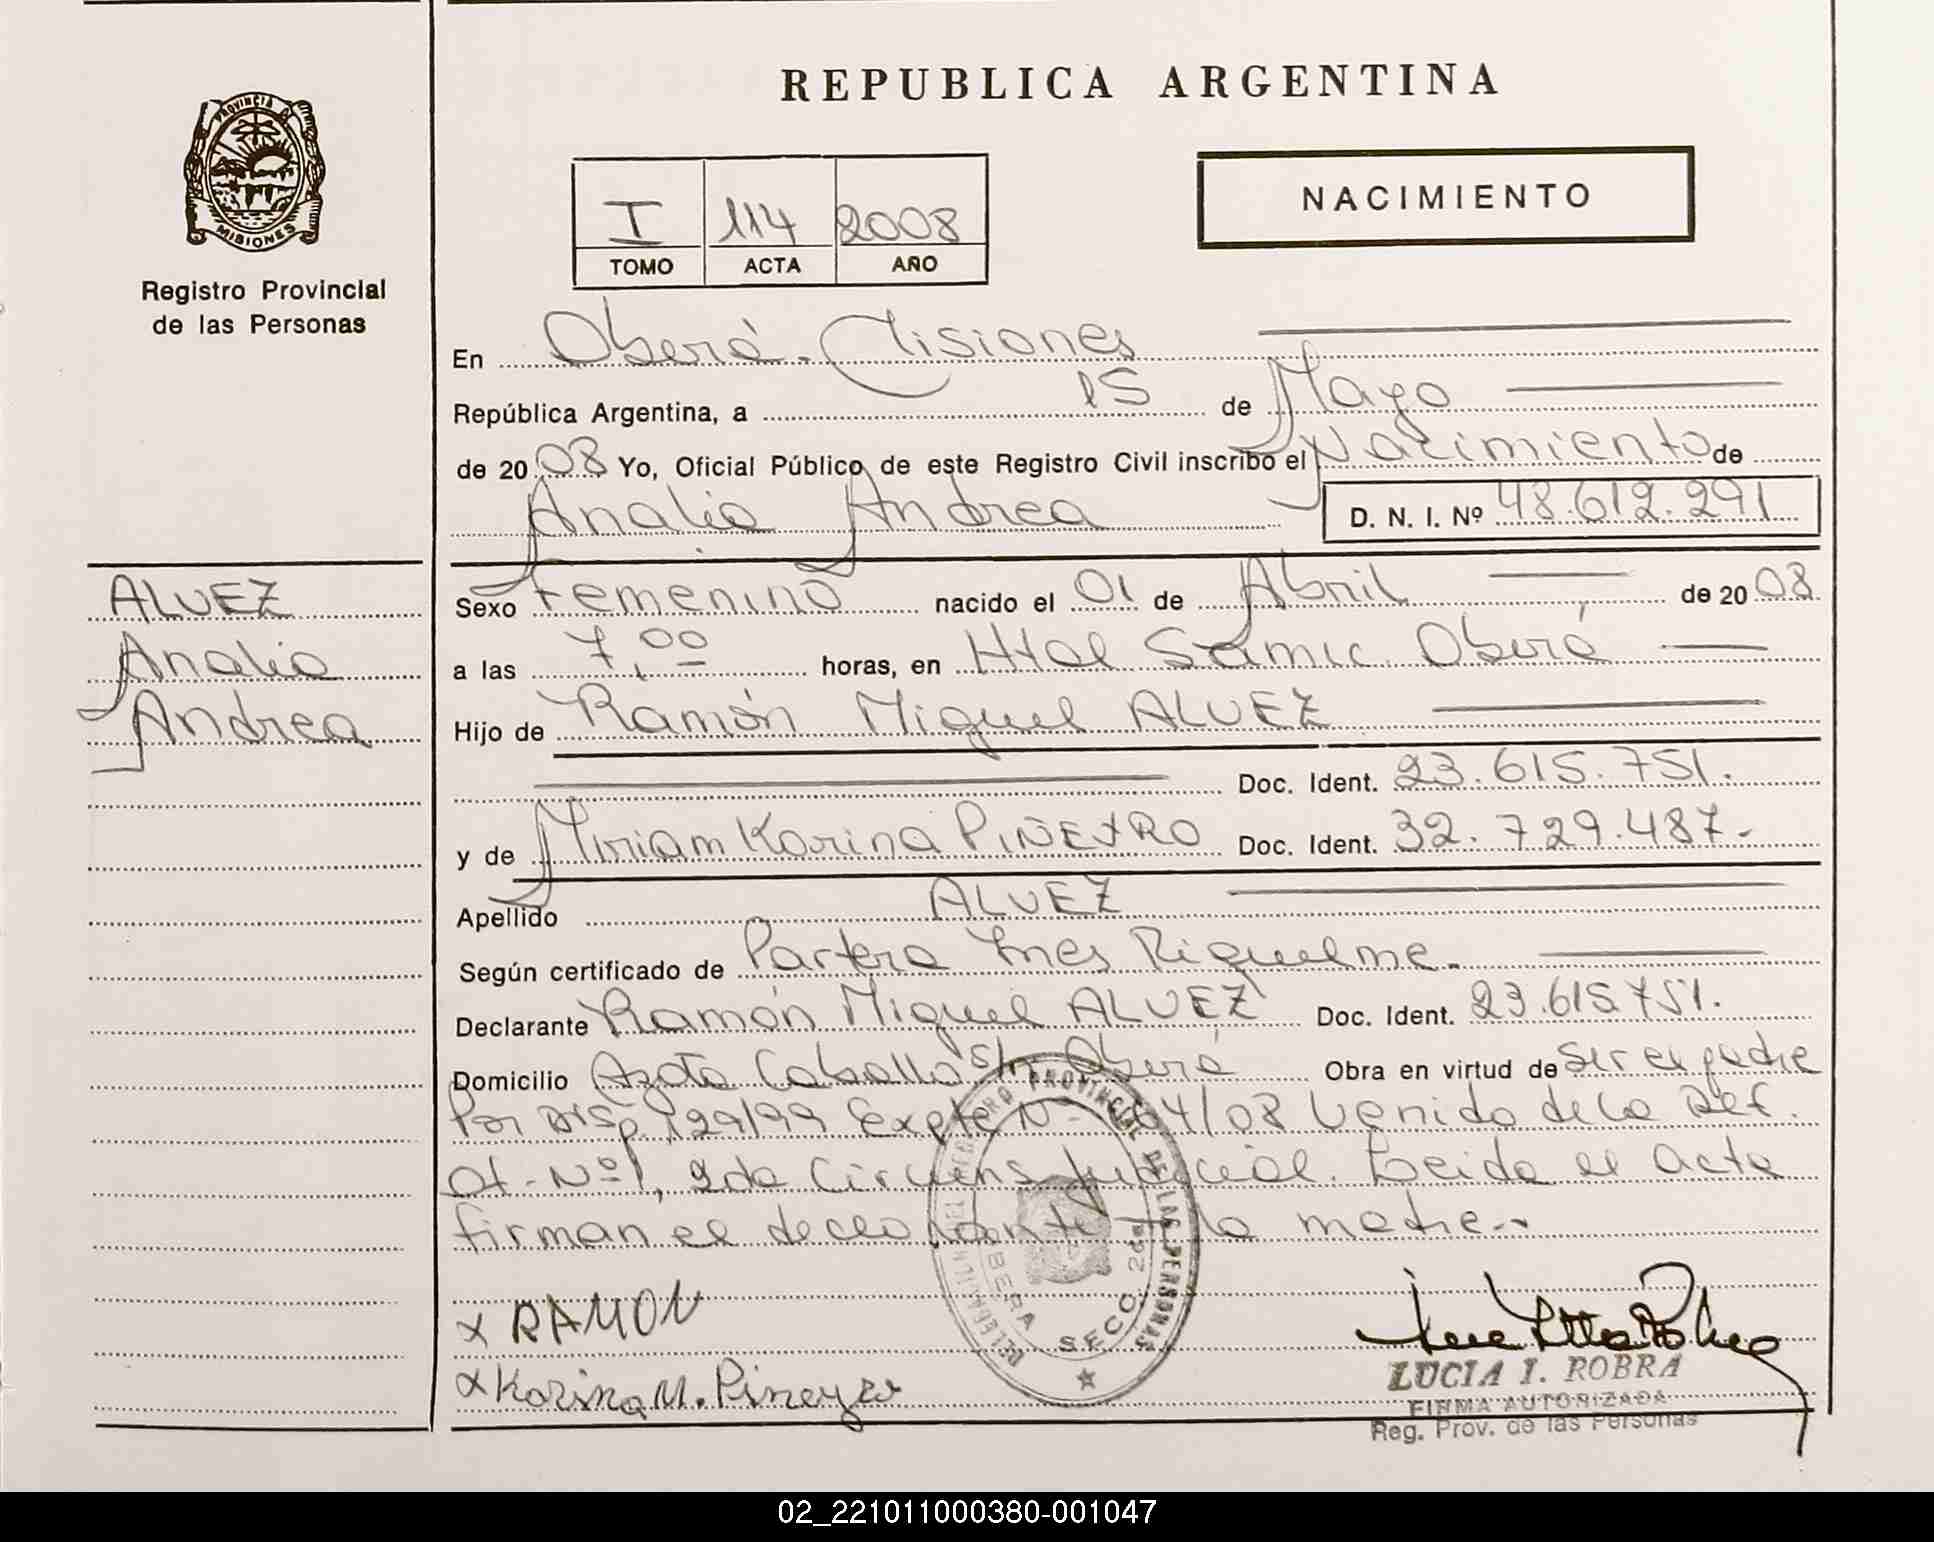 REPUBLICA ARGENTINA
PROVINCIA DE
MISIONES
Registro Provincial
de las Personas
I 114 2008
TOMO ACTA AÑO
NACIMIENTO
En Oberá - Misiones
República Argentina, a 15 de Mayo
de 2008 Yo, Oficial Público de este Registro Civil inscribo el Nacimiento de
Analia Andrea D. N. I. Nº 48.612.291
ALVEZ
Analia
Andrea
Sexo Femenino nacido el 01 de Abril de 2008
a las 7,00 horas, en Htal Samic Oberá
Hijo de Ramón Miguel ALVEZ
Doc. Ident. 23.615.751.
y de Miriam Karina PIÑEYRO Doc. Ident. 32.729.487-
Apellido ALVEZ
Según certificado de Partera Ines Riquelme.
Declarante Ramón Miguel ALVEZ Doc. Ident. 23.615.751.
Domicilio Azota Caballo s/n Oberá Obra en virtud de ser el padre
Por Disp 129/99 Expte Nº /08 Venido de la Def.
Of. Nº 1, 2da Circuns Judicial. Leida el acta
firman el declarante y la madre.-
REGISTRO PROVINCIAL DE LAS PERSONAS
DELEGACION
OBERA SECC. 2da
x RAMON
x Karina M. Pineyro
LUCIA I. ROBRA
FIRMA AUTORIZADA
Reg. Prov. de las Personas
02_221011000380-001047